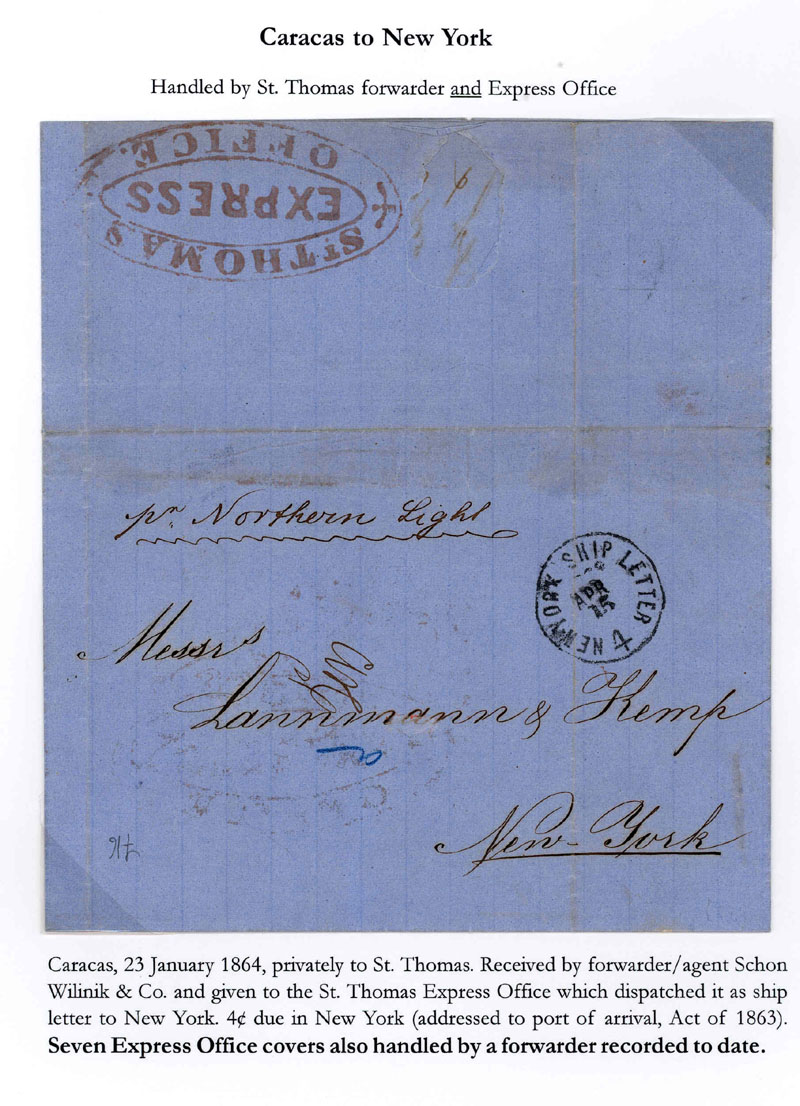 Caracas to New York
Handled by St. Thomas forwarder and Express Office
ST THOMAS
EXPRESS
OFFICE.
pr Northern Light
NEW YORK SHIP LETTER 4
APR
15
Messrs
Lannmann & Kemp
New-York
Caracas, 23 January 1864, privately to St. Thomas. Received by forwarder/agent Schon
Wilinik & Co. and given to the St. Thomas Express Office which dispatched it as ship
letter to New York. 4¢ due in New York (addressed to port of arrival, Act of 1863).
Seven Express Office covers also handled by a forwarder recorded to date.